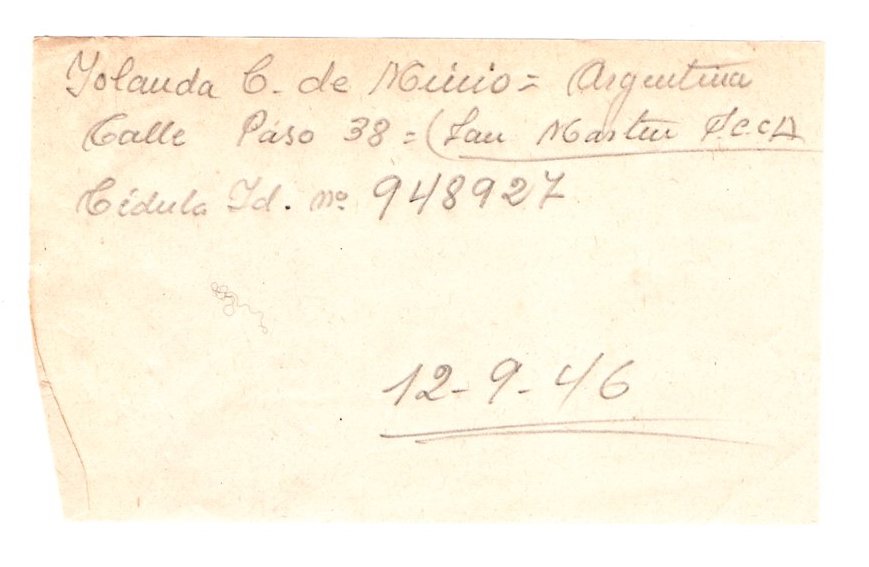 Yolanda C. de = Argentina
Calle Paso 38 = (San Martin F.C.C.A
Cédula Id. nº 948927
12-9-46